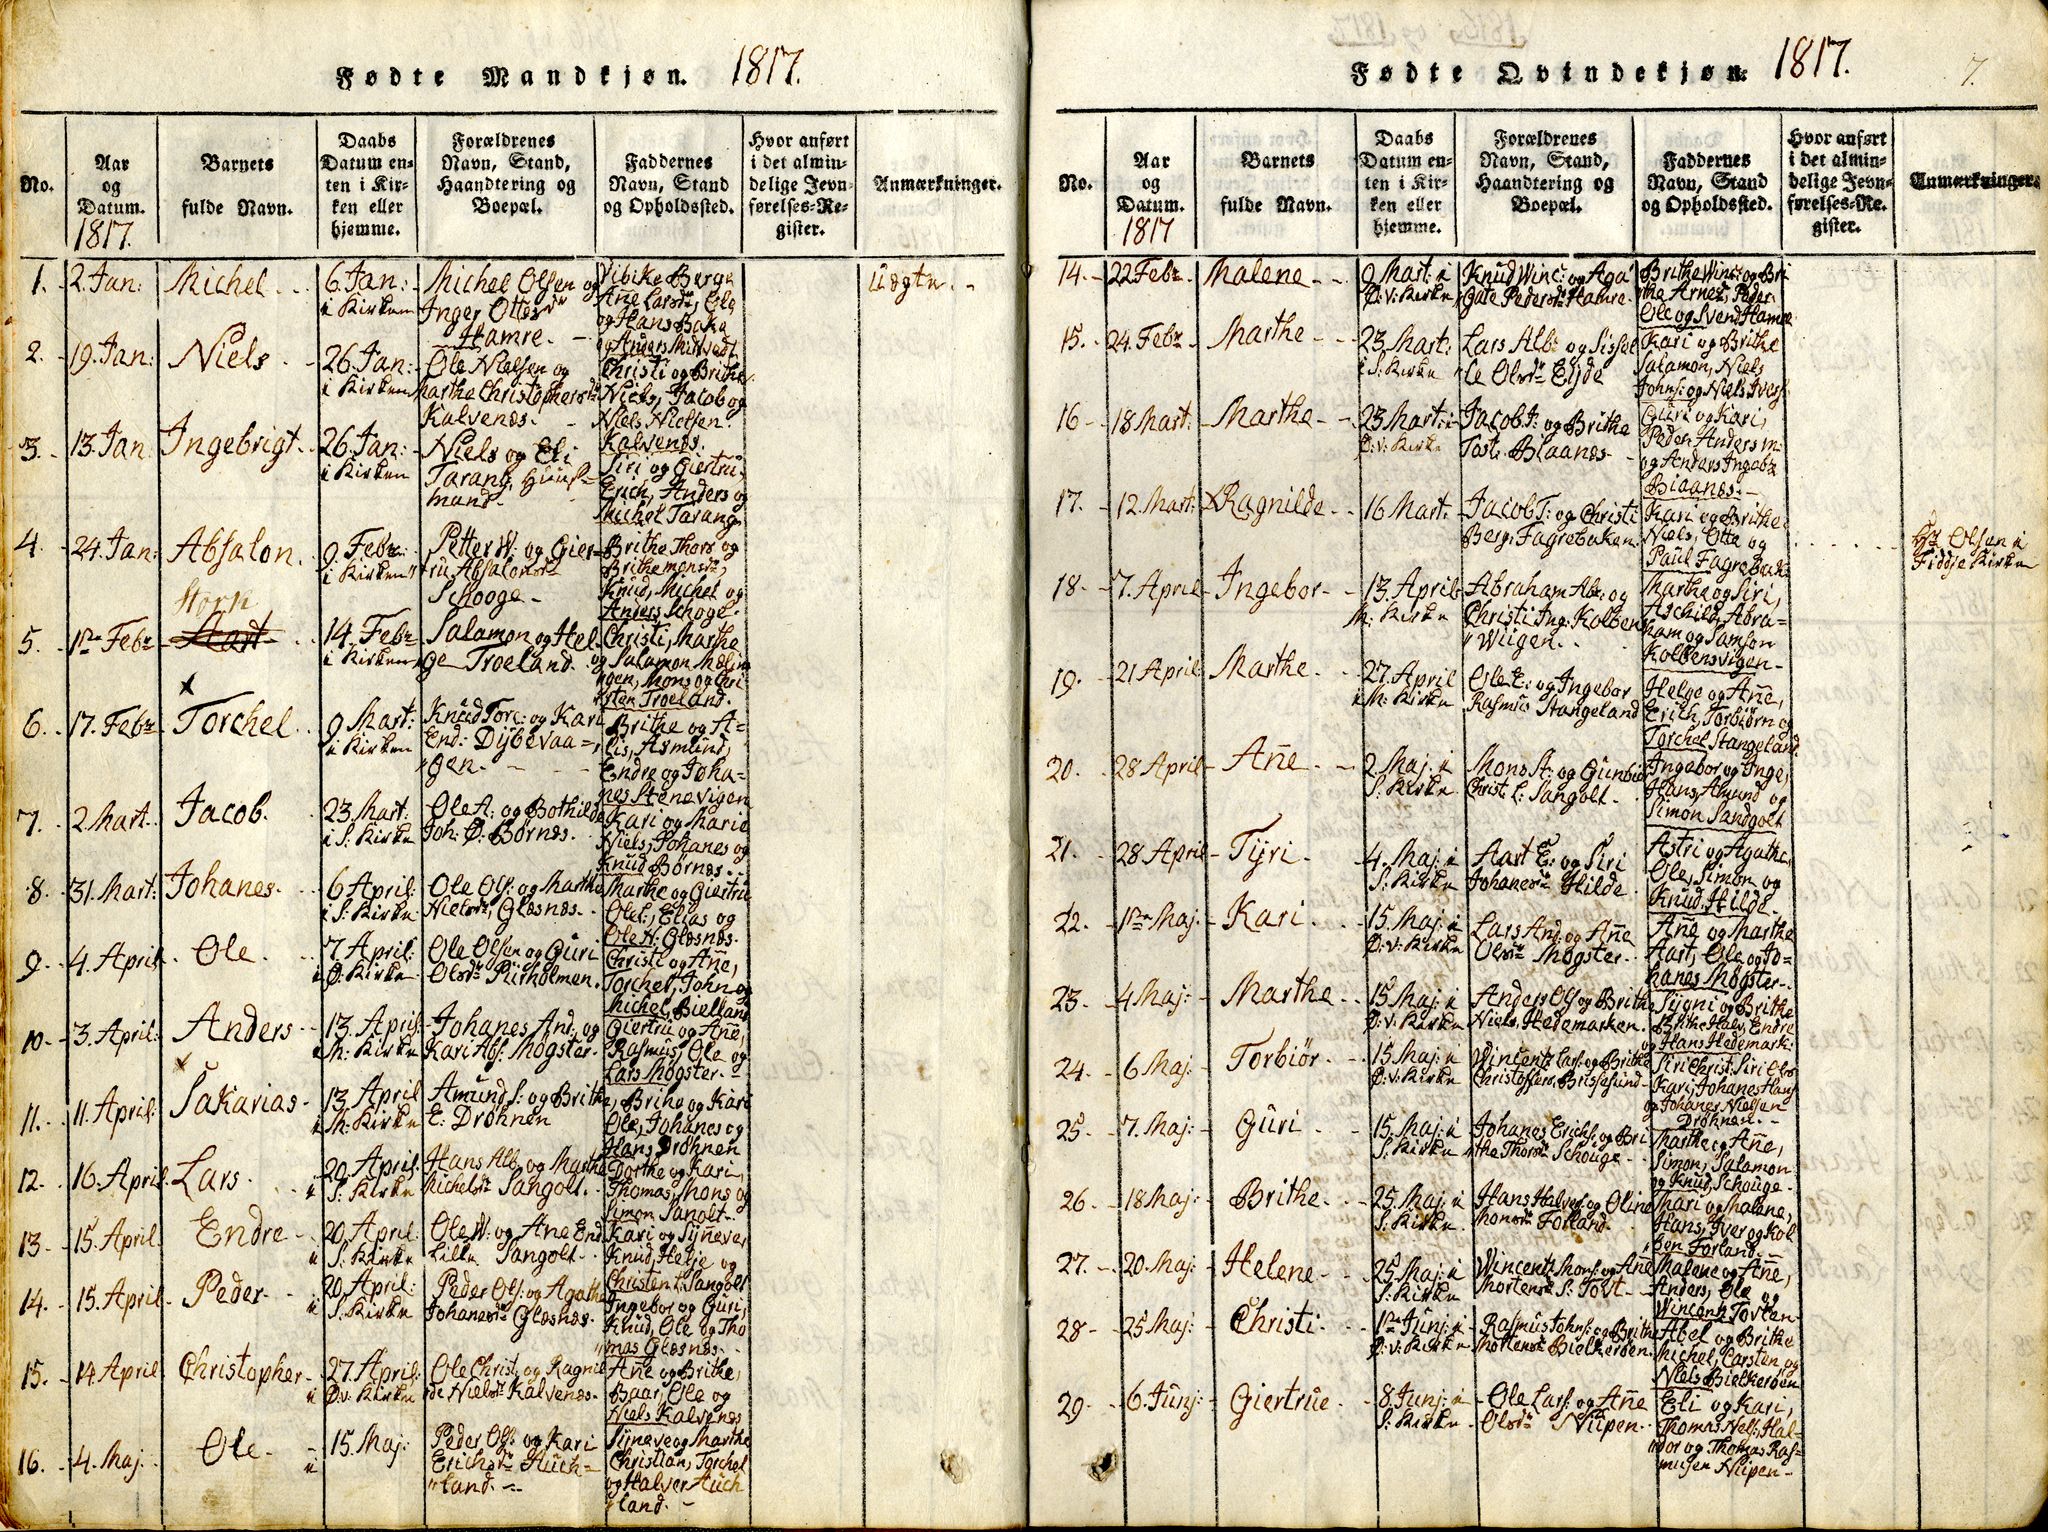 Fødte Mandkjøn. 1817.
No.
Aar
og
Datum.
1817.
Barnets
fulde Navn.
Daabs
Datum en-
ten i Kir-
ken eller
hjemme.
Forældrenes
Navn, Stand,
Haandtering og
Boepæl.
Faddernes
Navn, Stand
og Opholdssted.
Hvor anført
i det almin-
delige Jevn-
førelses-Re-
gister.
Anmærkninger.
1. 2. Jan: Michel
6. Jan:
i Kirken
Michel Olsen og
Inger Ottesdr
Hamre.
Vibike Berge
Ane Larsdr, Ole
og Hans Bake
og Anders
Uægte
2. 19. Jan: Niels
26 Jan:
i Kirken
Ole Nielsen og
Marthe Christophersdr
Kalvenæs.
Christi og Brithe
Niels, Jacob og
Niels Nielsen
Kalvenæs.
3. 13. Jan: Ingebrigt
26 Jan:
i Kirken
Niels og Eli
Tarang, Huus-
mand
Siri og Giertru,
Erich, Anders og
Michel Tarang
4. 24. Jan: Absalon
9. Febr:
i Kirken
Petter W: og Gier-
tru Absalonsdr
Schooge
Brithe Thors og
Brithe monsdr,
Knud, Michel og
Anders Schoge
5. 1ste Febr
Stork
Aart
14. Febr
i Kirken
Salamon og Hel-
ge Troeland
Christi, Marthe
og Salamon Møling-
gen, Mons og Chri-
sten Troeland.
6. 17. Febr Torchel
9 Mart:
i Kirken
Knud Torc: og Kari
End: Dybevaa-
gen.
Brithe og A-
lis, Asmund,
Endre og Joha-
nes Stenevigen
7. 2. Mart. Jacob.
23. Mart:
i S: Kirke
Ole A: og Bothilde
Joh: D: Børnes.
Kari og Marie
Niels, Johanes og
Knud Børnes.
8. 31. Mart: Johanes.
6 April:
i S: Kirke
Ole Ols: og Marthe
Nielsdr, Glæsnæs.
Marthe og Giertru
Ole L:, Elias og
Ole N: Glæsnæs.
9. 4. April. Ole.
7. April:
i Ø: Kirke
Ole Olsen og Guri
Olsdr Rirholmen.
Christi og Ane,
Torchel, John og
Michel Bielland
10. 3. April: Anders
13. April
i M: Kirke
Johanes And: og
Kari Abs: Møgster.
Giertru og Ane,
Rasmus, Ole og
Lars Møgster.
11. 11. April: Sakarias
13. April
i M: Kirke
Amund S: og Brithe
E: Drøhnen
Brihe og Kari
Ole, Johanes og
Hans Drøhnen
12. 16. April. Lars
20. April.
i S: Kirke
Hans Alb: og Marthe
Michelsdr Sangolt.
Dorthe og Kari,
Thomas, Mons og
Simon Sanolt.
13. 15. April. Endre
20. April.
i S: Kirke
Ole W: og Ane End:
Lille Sangolt.
Kari og Synneve,
Knud, Helje og
Christen L: Sangolt
14. 15. April. Peder
20. April:
i S: Kirke
Peder Ols: og Agathe
Johanesdr Glæsnæs.
Ingebor og Guri,
Knud, Ole og Tho
mas Glæsnæs.
15. 14 April Christopher
27. April:
i Ø: v: Kirke
Ole Christ: og Ragnil
de Nielsdr Kalvenæs.
Ane og Brithe,
Baar, Ole og
Niels Kalvenæs
16. 4. Maj. Ole
i 15. Maj:
Peder Ols: og Kari
Erichsdr Auch-
land.
Synneve og Marthe
Christian, Torchel
og Halver Auch
land.
Fødte Qvindekjøn: 1817. 7.
No.
Aar
og
Datum.
1817
Barnets
fulde Navn.
Daabs
Datum en-
ten i Kir-
ken eller
hjemme.
Forældrenes
Navn, Stand,
Haandtering og
Boepæl.
Faddernes
Navn, Stand
og Opholdssted.
Hvor anført
i det almin-
delige Jevn-
førelses-Re-
gister.
Anmærkninger.
14. 22 Febr. Malene
9 Mart: i
Ø: v: Kirke
Knud Winc: og Aga
gate Pedersdr Hamre.
Brithe Winc: og Bri
the Arnes, Peder
Ole og Svend Hamre
15. 24. Febr Marthe
23 Mart:
i S: Kirke
Lars Alb: og Sissel
Le Olsdr Eyde
Kari og Brithe
Salamon, Niels
Johns: og Niels Ivers:
16 18 Mart: Marthe
23 Mart: i
Ø: v: Kirke
Jacob J: og Brithe
Tost: Blaanæs
Guri og Kari,
Peder, Anders m:
og Anders Ingebr
Blaanæs.
17. 12. Mart: Ragnilde
16 Mart:
Jacob T: og Christi
Berg: Fagrebaken.
Kari og Brithe
Niels, Otte og
Paul Fagrebak:
Hr Olsen i
Fiddje Kirke
18. 7. April Ingebor
13. April
M: Kirke
Abraham Abr: og
Christi Ing: Kolben
Wiigen.
Marthe og Siri,
Aschild, Abra-
ham og Samson
Kolbensvigen
19. 21 April Marthe
27. April
i M: Kirke
Ole E: og Ingebor
Rasmus Stangeland
Helge og Ane,
Erich, Torbiørn og
Torchel Stangeland.
20. 28 April Ane
2. Maj. i
S: Kirke
Mons A: og Gunbior
Christ: L: Sangolt.
Ingebor og Inge,
Hans, Amund og
Simon Sandgolt
21. 28 April Tyri.
4. Maj: i
S: Kirke
Aart E: og Siri
Johanesdr Hilde.
Astri og Agathe,
Ole, Simon og
Knud Hilde
22. 1ste Maj. Kari
15. Maj: i
Ø: v: Kirke
Lars And: og Ane
Olsdr Møgster.
Ane og Marthe
Aart, Ole og Jo-
hanes Møgster.
23. 4 Maj: Marthe
15 Maj: i
Ø: v: Kirke
Anders Ols: og Brithe
Niels: Hedemarken.
Sygni og Brithe
Brithe Halv: Endre
og Hans Hedemark:
24. 6 Maj: Torbiør
15. Maj: i
Ø: v: Kirke
Wincentz Lars: og Brithe
Christoffers: Brissesund
Siri Christ: Siri Ols
Kari, Johanes Hans
og Johanes Nielsen
Drøhnen.
25. 7. Maj: Guri
15. Maj: i
S: Kirke
Johanes Erichs: og Bri
the Thorsdr Schouge
Marthe og Ane,
Simon, Salamon
og Knud Schouge
26. 18 Maj: Brithe
25. Maj: i
S: Kirke
Hans Halvers: og Oline
Monsdr Forland.
Mari og Malene,
Hans, Iver og Kol
ben Forland.
27. 20. Maj: Helene
25 Maj: i
S: Kirke
Wincentz Mons: og Ane
Mortensdr S: Tovt
Malene og Ane,
Anders, Ole og
Wincentz Tovten
28 25 Maj: Christi.
1ste Junj: i
Ø: v: Kirke
Rasmus Johns: og Brithe
Mortensdr Bielkerøen.
Abel og Brithe
Michel, Carsten og
Niels Bielkerøen
29. 6. Junj: Giertrue
8. Junj: i
S: Kirke
Ole Lars: og Ane
Olsdr Niipen.
Eli og Kari,
Thomas Nels: Hal-
dor og Thomas Ras-
musen Niipen